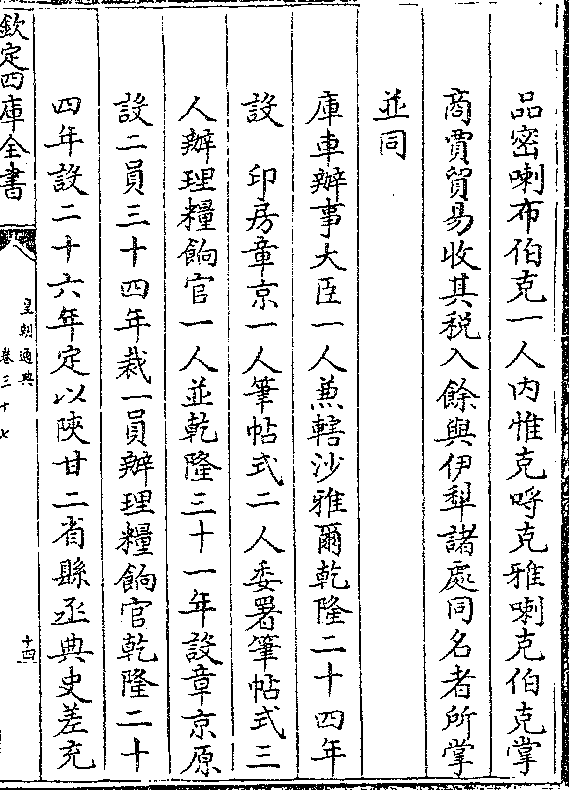 品密喇布伯克一人内惟克哷克雅喇克伯克掌
商賈貿易收其税入餘與伊犂諸處同名者所掌
並同
庫車辦事大臣一人兼轄沙雅爾乾隆二十四年
設　印房章京一人筆帖式二人委署筆帖式三
人辦理糧餉官一人並乾隆三十一年設章京原
設二員三十四年裁一員辦理糧餉官乾隆二十
四年設二十六年定以陜甘二省縣丞典史差充
欽定四庫全書
皇朝通典
卷三十七
十四